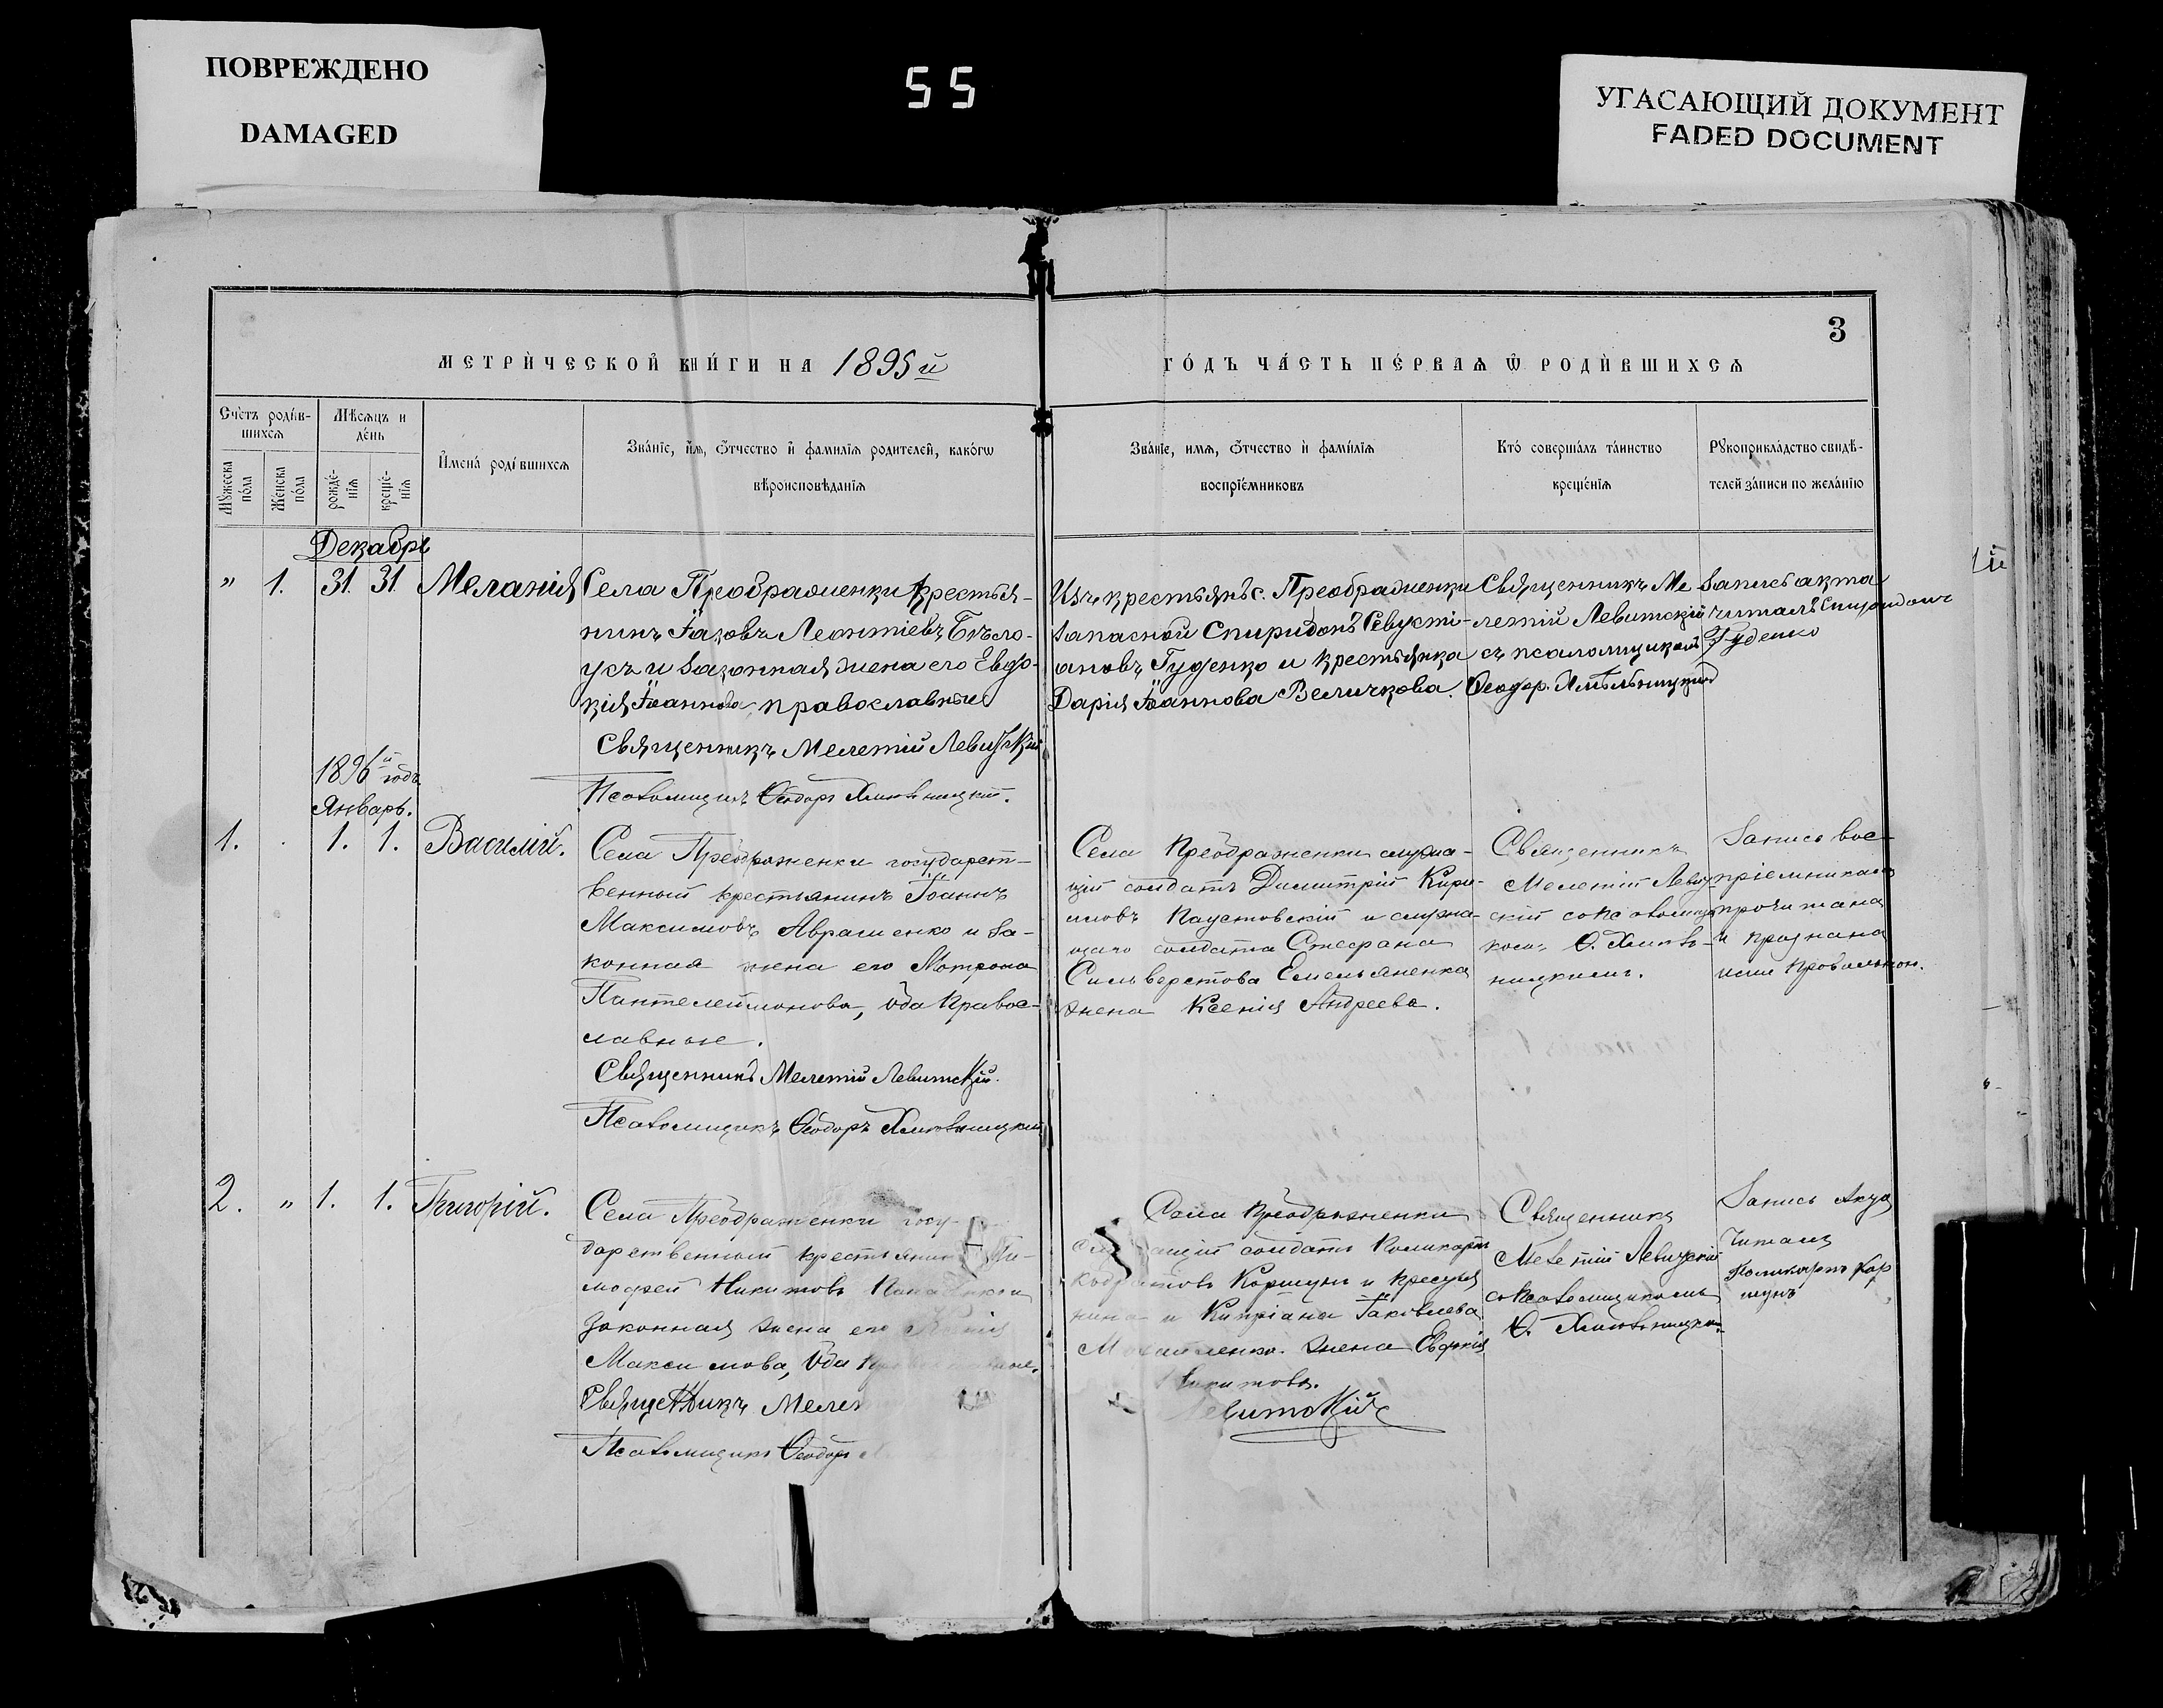 ПОВРЕЖДЕНО
DAMAGED
55
УГАСАЮЩИЙ ДОКУМЕНТ
FADED DOCUMENT
3
МЕТРИ́ЧЕСКОЙ КНИ́ГИ НА 1895й
ГО́ДЪ ЧА́СТЬ ПЕ́РВАЯ Ѡ РОДИ́ВШИХСЯ
Сче́тъ роди́в-
шихся
Мѣ́сяцъ и
де́нь
Му́жеска
по́ла
Же́нска
по́ла
рожде́-
нія
креще́-
нія
Имена́ роди́вшихся
Зва́ніе, и́мя, о́тчество и фами́лія роди́телей, како́гѡ
вѣроисповѣ́данія
Зва́ніе, имя, о́тчество и фами́лія
воспріе́мниковъ
Кто́ соверша́лъ та́инство
креще́нія
Рукоприкла́дство свидѣ́-
телей за́писи по жела́нію
Декабрь
" 1. 31. 31. Меланія
Села Преображенки крестья-
нинъ Іаковъ Леонтіевъ Бѣло-
усъ и законная жена его Евдо-
кія Іоаннова, православные
Священникъ Мелетій Левитскій
Псаломщикъ Ѳеодоръ
Изъ крестьянъ с. Преображенки
запасной Спиридонъ Севусті-
ановъ Гуденко и крестьянка
Дарія Іоаннова Величкова.
Священникъ Ме-
летій Левитскій
съ псаломщикомъ
Ѳеодор.
Запись акта
читалъ Спиридонъ
Гуденко
1896й годъ
Январь.
1. 1. 1. Василій.
Села Преображенки государст-
венный крестьянинъ Іоаннъ
Максимовъ Авраменко и за-
конная жена его Мотрона
Пантелеимонова, оба правос-
лавные.
Священникъ Мелетій Левитскій.
Псаломщикъ Ѳеодоръ
Села Преображенки служа-
щій солдатъ Димитрій Кири-
ловъ Паустовскій и служа-
щаго солдата Стефана
Сильверстова Емельяненка
жена Ксенія Андреева.
Священникъ
Мелетій Левит-
скій со псаломщи-
комъ Ѳ.
Запись вос-
пріемниками
прочитана
и признана
ими правильною.
2. " 1. 1. Григорій.
Села Преображенки госу-
дарственный крестьянинъ Ти-
мофей Никитовъ
законная жена его
Максимова, оба православные.
Священникъ
Псаломщикъ Ѳеодоръ
Села Преображенки
солдатъ Поликарпъ
Коршунъ и
Кипріана Іаковлева
жена Евфимія
Никитова.
Левитскій
Священникъ
Мелетій Левитскій
со псаломщикомъ
Ѳ.
Запись акта
Читалъ
Поликарпъ Кор
шунъ